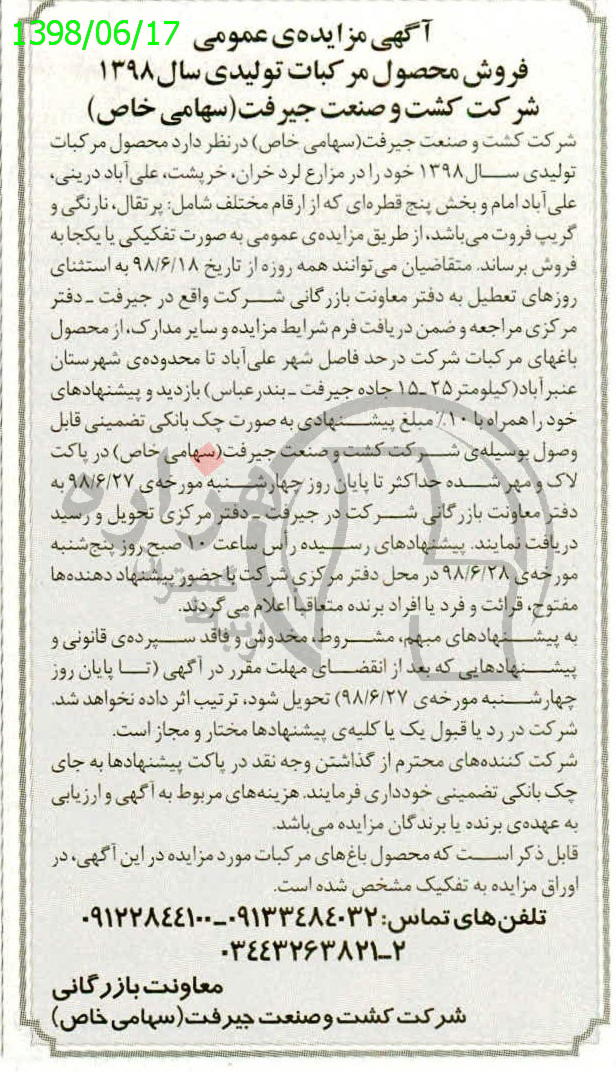 1398/06/17
آگهی مزایده‌ی عمومی
فروش محصول مرکبات تولیدی سال ۱۳۹۸
شرکت کشت و صنعت جیرفت(سهامی خاص)
شرکت کشت و صنعت جیرفت(سهامی خاص) درنظر دارد محصول مرکبات
تولیدی سال۱۳۹۸ خود را در مزارع لرد خران، خرپشت، علی‌آباد درینی،
علی‌آباد امام و بخش پنج قطره‌ای که از ارقام مختلف شامل: پرتقال، نارنگی و
گریپ فروت می‌باشد، از طریق مزایده‌ی عمومی به صورت تفکیکی یا یکجا به
فروش برساند. متقاضیان می‌توانند همه روزه از تاریخ ۹۸/۶/۱۸ به استثنای
روزهای تعطیل به دفتر معاونت بازرگانی شرکت واقع در جیرفت ـ دفتر
مرکزی مراجعه و ضمن دریافت فرم شرایط مزایده و سایر مدارک، از محصول
باغهای مرکبات شرکت درحد فاصل شهر علی‌آباد تا محدوده‌ی شهرستان
عنبرآباد(کیلومتر ۲۵ـ۱۵ جاده جیرفت ـ بندرعباس) بازدید و پیشنهادهای
خود را همراه با ۱۰٪ مبلغ پیشنهادی به صورت چک بانکی تضمینی قابل
وصول بوسیله‌ی شرکت کشت و صنعت جیرفت(سهامی خاص) در پاکت
لاک و مهر شده حداکثر تا پایان روز چهارشنبه مورخه‌ی ۹۸/۶/۲۷ به
دفتر معاونت بازرگانی شرکت در جیرفت ـ دفتر مرکزی تحویل و رسید
دریافت نمایند. پیشنهادهای رسیده رأس ساعت ۱۰ صبح روز پنج‌شنبه
مورخه‌ی ۹۸/۶/۲۸ در محل دفتر مرکزی شرکت با حضور پیشنهاد دهنده‌ها
مفتوح، قرائت و فرد یا افراد برنده متعاقباً اعلام می‌گردند.
به پیشنهادهای مبهم، مشروط، مخدوش و فاقد سپرده‌ی قانونی و
پیشنهادهایی که بعد از انقضای مهلت مقرر در آگهی (تا پایان روز
چهارشنبه مورخه‌ی ۹۸/۶/۲۷) تحویل شود، ترتیب اثر داده نخواهد شد.
شرکت در رد یا قبول یک یا کلیه‌ی پیشنهادها مختار و مجاز است.
شرکت کننده‌های محترم از گذاشتن وجه نقد در پاکت پیشنهادها به جای
چک بانکی تضمینی خودداری فرمایند. هزینه‌های مربوط به آگهی و ارزیابی
به عهده‌ی برنده یا برندگان مزایده می‌باشد.
قابل ذکر است که محصول باغ‌های مرکبات مورد مزایده در این آگهی، در
اوراق مزایده به تفکیک مشخص شده است.
تلفن‌های تماس: ۰۹۱۳۳۴۸۴۰۳۲ـ۰۹۱۲۲۸۴۴۱۰۰
۰۳۴۴۳۲۶۳۸۲۱ـ۲
معاونت بازرگانی
شرکت کشت و صنعت جیرفت(سهامی خاص)